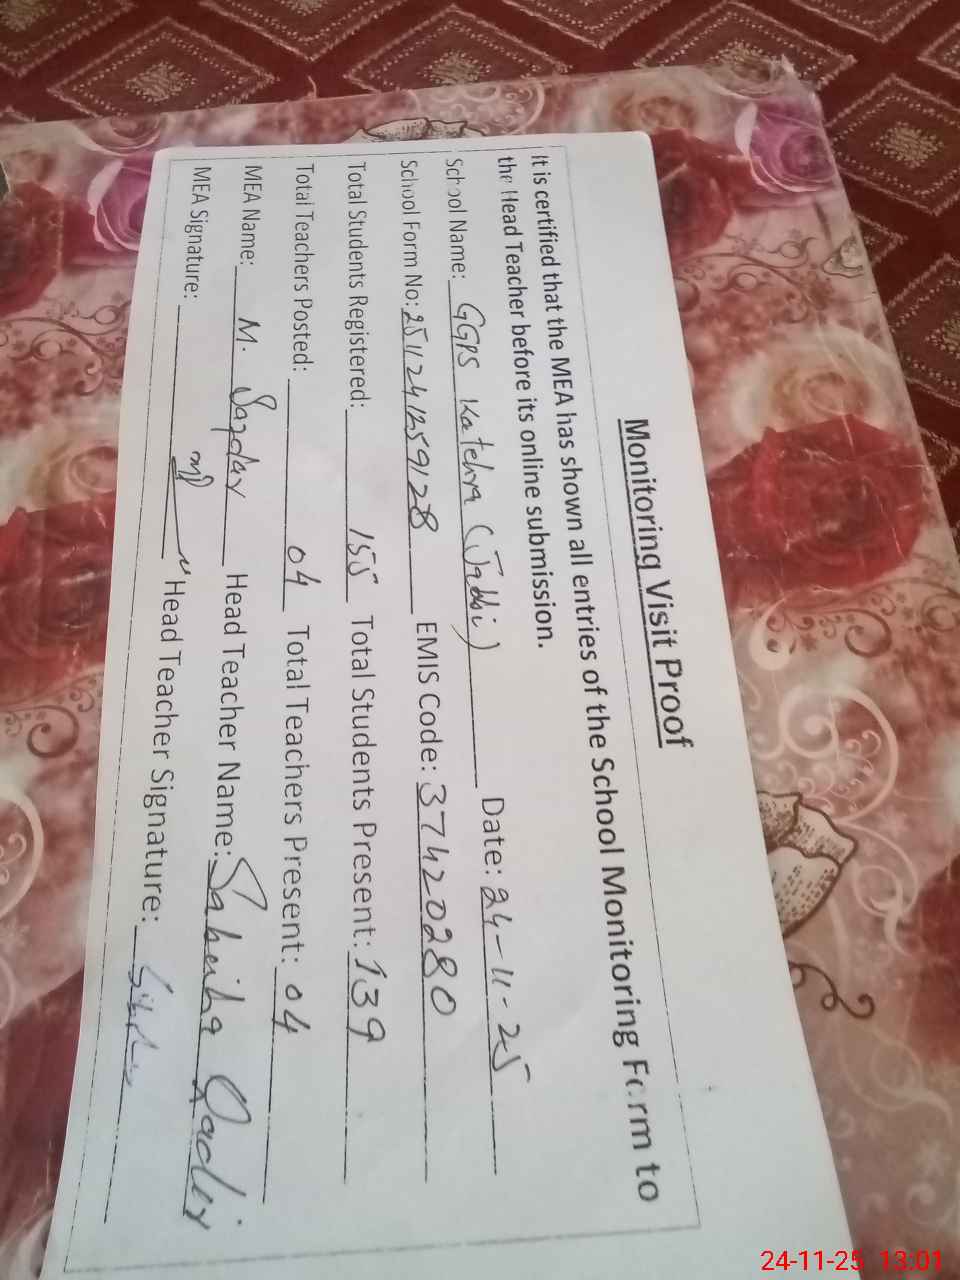 Monitoring Visit Proof
It is certified that the MEA has shown all entries of the School Monitoring Form to
the Head Teacher before its online submission.
School Name: GGPS Katehra (Jabbi) Date: 24-11-25
School Form No: 2511241259128 EMIS Code: 37420280
Total Students Registered: 155 Total Students Present: 139
Total Teachers Posted: 04 Total Teachers Present: 04
MEA Name: M. Head Teacher Name: Sabeiha
MEA Signature: Head Teacher Signature:
24-11-25 13:01